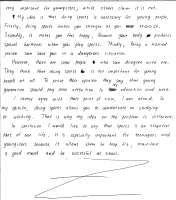 very important for youngsters, while others claim it is not.
My idea is that doing sports is necessary for young people.
Firstly, doing sports makes you stronger as your muscle
Secondly, it makes you feel happy, because your body produces
special hormone when you play sports. Thirdly, being a trained
person can save you in a dangerous situation.
However, there are some people who can disagree with me.
They think that doing sports is not important for young
people at all. To prove their opinion they say that young
generation should pay more attention to education and work.
I cannot agree with their point of view, I am afraid. In
my opinion, doing sports allows you to concentrate on studying
or working. That is why my idea on the problem is different.
In conclusion I would like to say that sports is an important
part of our life. It is especially important for teenagers and
youngsters because it allows them to stay fit, maintain
a good mood and be successful at school.